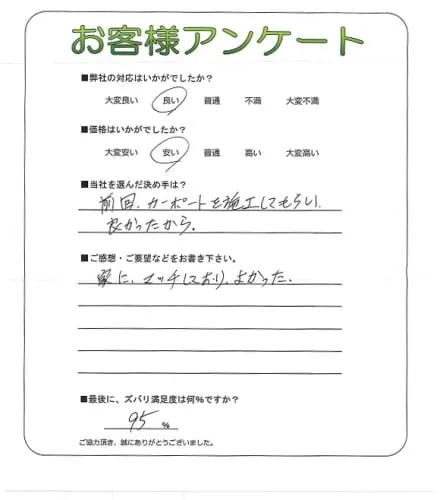 お客様アンケート
■弊社の対応はいかがでしたか？
大変良い 良い 普通 不満 大変不満
■価格はいかがでしたか？
大変安い 安い 普通 高い 大変高い
■当社を選んだ決め手は？
前回、カーポートを施工してもらい、
良かったから。
■ご感想・ご要望などをお書き下さい。
家に、マッチしており、よかった。
■最後に、ズバリ満足度は何％ですか？
95 ％
ご協力頂き、誠にありがとうございました。